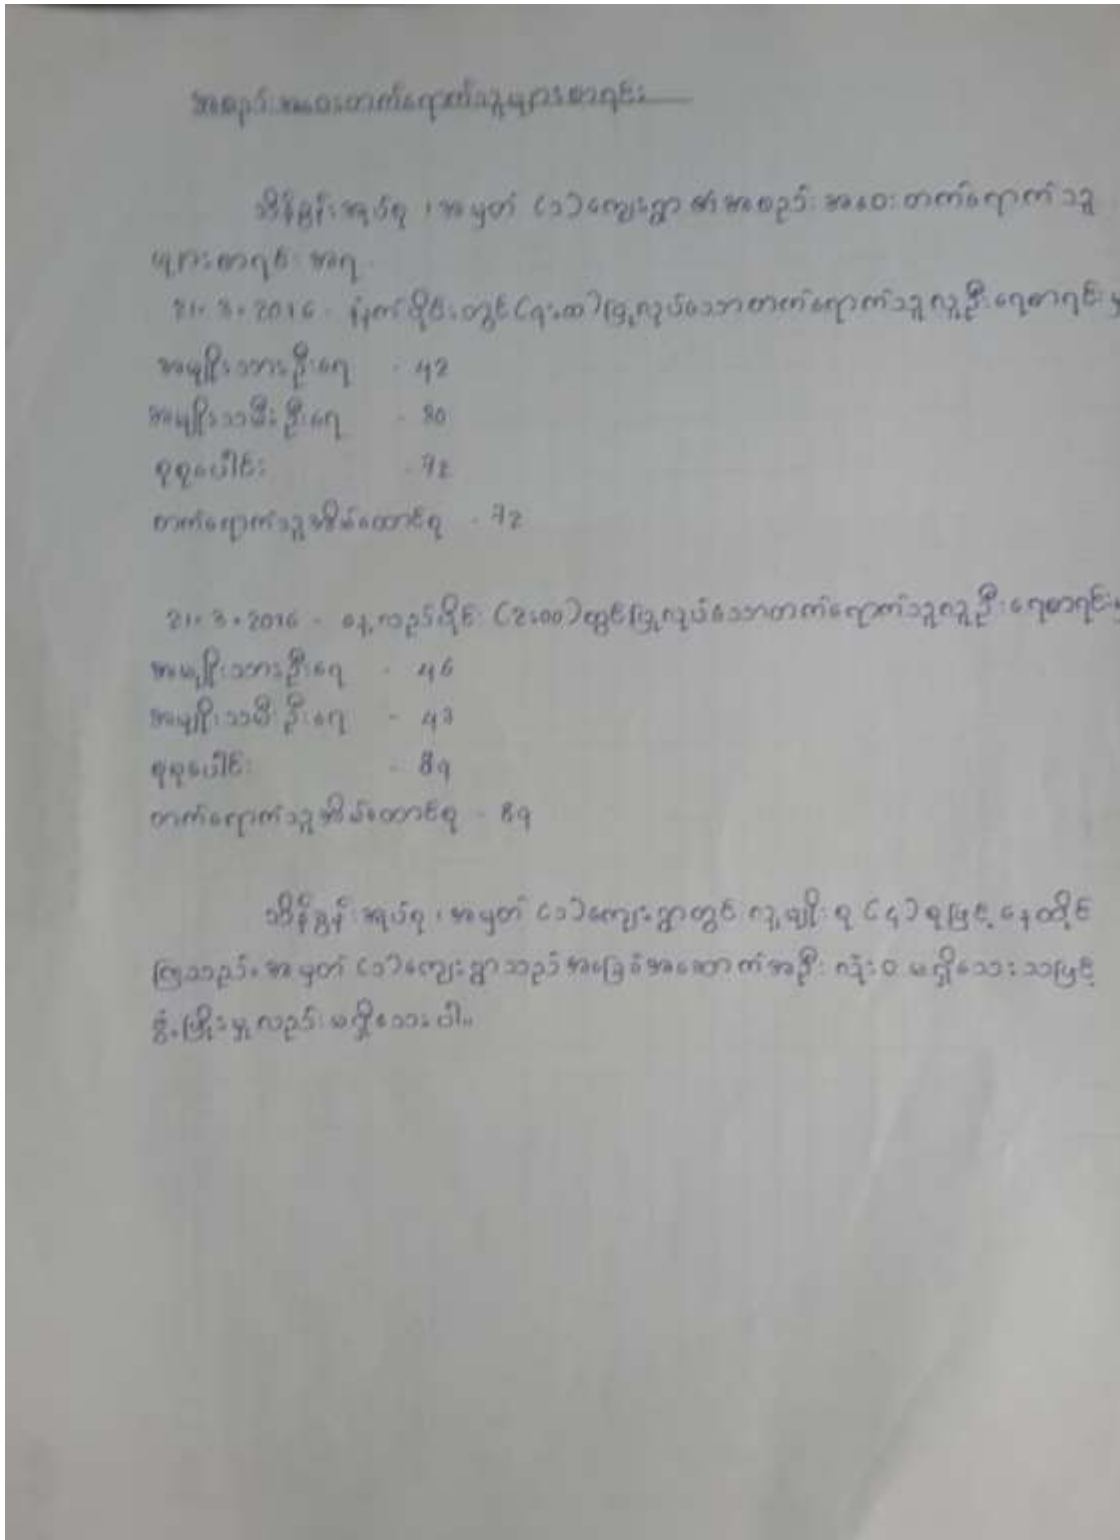 အစည်းအဝေးတက်ရောက်သူများစာရင်း
သိန်ခွန်းအုပ်စု ၊ အမှတ် (၁) ကျေးရွာ ၏ အစည်း အဝေး တက်ရောက် သူ
များစာရင်း အရ
21. 3. 2016 - နံနက်ပိုင်းတွင် ပြုလုပ်သောတက်ရောက်သူလူဦးရေစာရင်း
အမျိုးသားဦးရေ - 42
အမျိုးသမီးဦးရေ - 30
စုစုပေါင်း - 72
တက်ရောက်သူအိမ်ထောင်စု - 72
21. 3. 2016 - နေ့လည်ပိုင်း (2:00) တွင်ပြုလုပ်သောတက်ရောက်သူလူဦးရေစာရင်း
အမျိုးသားဦးရေ - 46
အမျိုးသမီးဦးရေ - 43
စုစုပေါင်း - 89
တက်ရောက်သူအိမ်ထောင်စု - 89
သိန်ခွန်းအုပ်စု ၊ အမှတ် (၁) ကျေးရွာတွင် လူမျိုးစု (၄) စုဖြင့် နေထိုင်
ကြသည်။ အမှတ် (၁) ကျေးရွာသည် အခြေခံအဆောက်အဦး လုံးဝ မရှိသေးသဖြင့်
ဖွံ့ဖြိုးမှုလည်း မရှိသေးပါ။